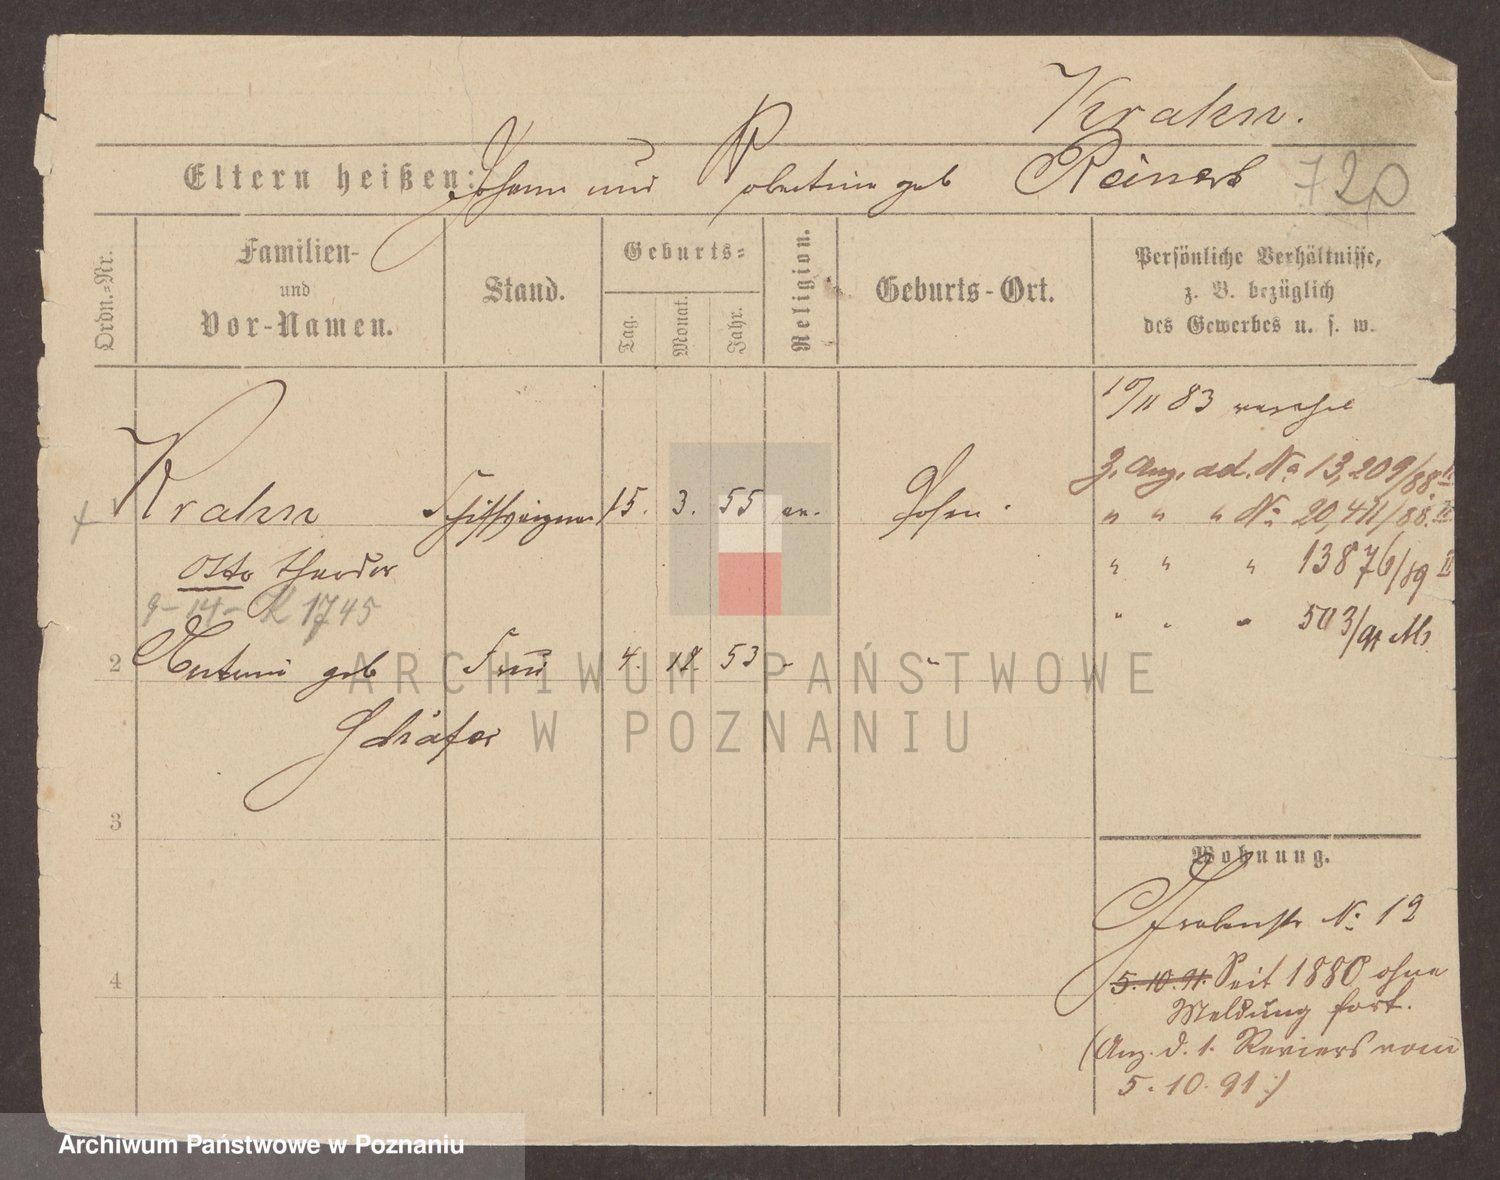 Krahn.
Eltern heißen: Johann und Robertine geb Reinert
720
Ordn.-Nr.
Familien-
und
Vor-Namen.
Stand.
Geburts-
Tag.
Monat.
Jahr.
Religion.
Geburts-Ort.
Persönliche Verhältnisse,
z. B. bezüglich
des Gewerbes u. s. w.
10/11 83
z. Anz. ad. No 13,209/88 II
1 Krahn Schiffseigner 15. 3. 55 ev. Posen
" " " No 20,411/88. II
Otto Theodor
" " " 13876/89 II
9-14- K 1745
" " " 503/91
2 geb Frau 4. 12. 53 " "
Schäfer
3
Wohnung.
Grabenstr No 12
4
5.10.91. Seit 1880 ohne
Meldung fort.
(Anz. d. 1. Reviers vom
5.10.91.)
ARCHIWUM PAŃSTWOWE
W POZNANIU
Archiwum Państwowe w Poznaniu